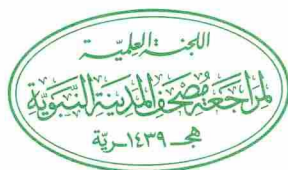 اللجنة العلمية
لمراجعة مصحف المدينة النبوية
١٤٣٩ هجـرية